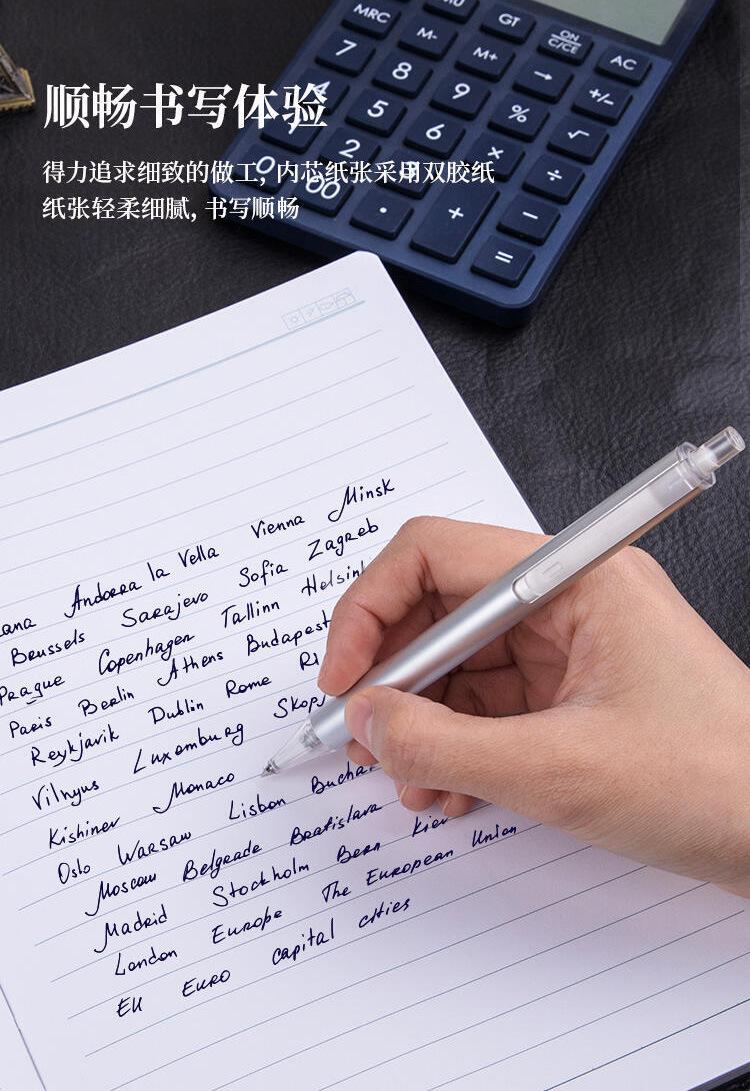 MRC MU GT ON C/CE AC
7 M- M+ → +/-
4 8 9 % √
1 5 6 × ÷
0 2 3 + −
00 · =
顺畅书写体验
得力追求细致的做工, 内芯纸张采用双胶纸
纸张轻柔细腻, 书写顺畅
Andorra la Vella Vienna Minsk
Brussels Sarajevo Sofia Zagreb
Prague Copenhagen Tallinn
Paris Berlin Athens Budapest
Reykjavik Dublin Rome
Vilnyus Luxemburg
Kishinev Monaco
Oslo Warsaw Lisbon
Moscow Belgrade Bratislava
Madrid Stockholm Bern Kiev
London Europe The European Union
EU Euro capital cities